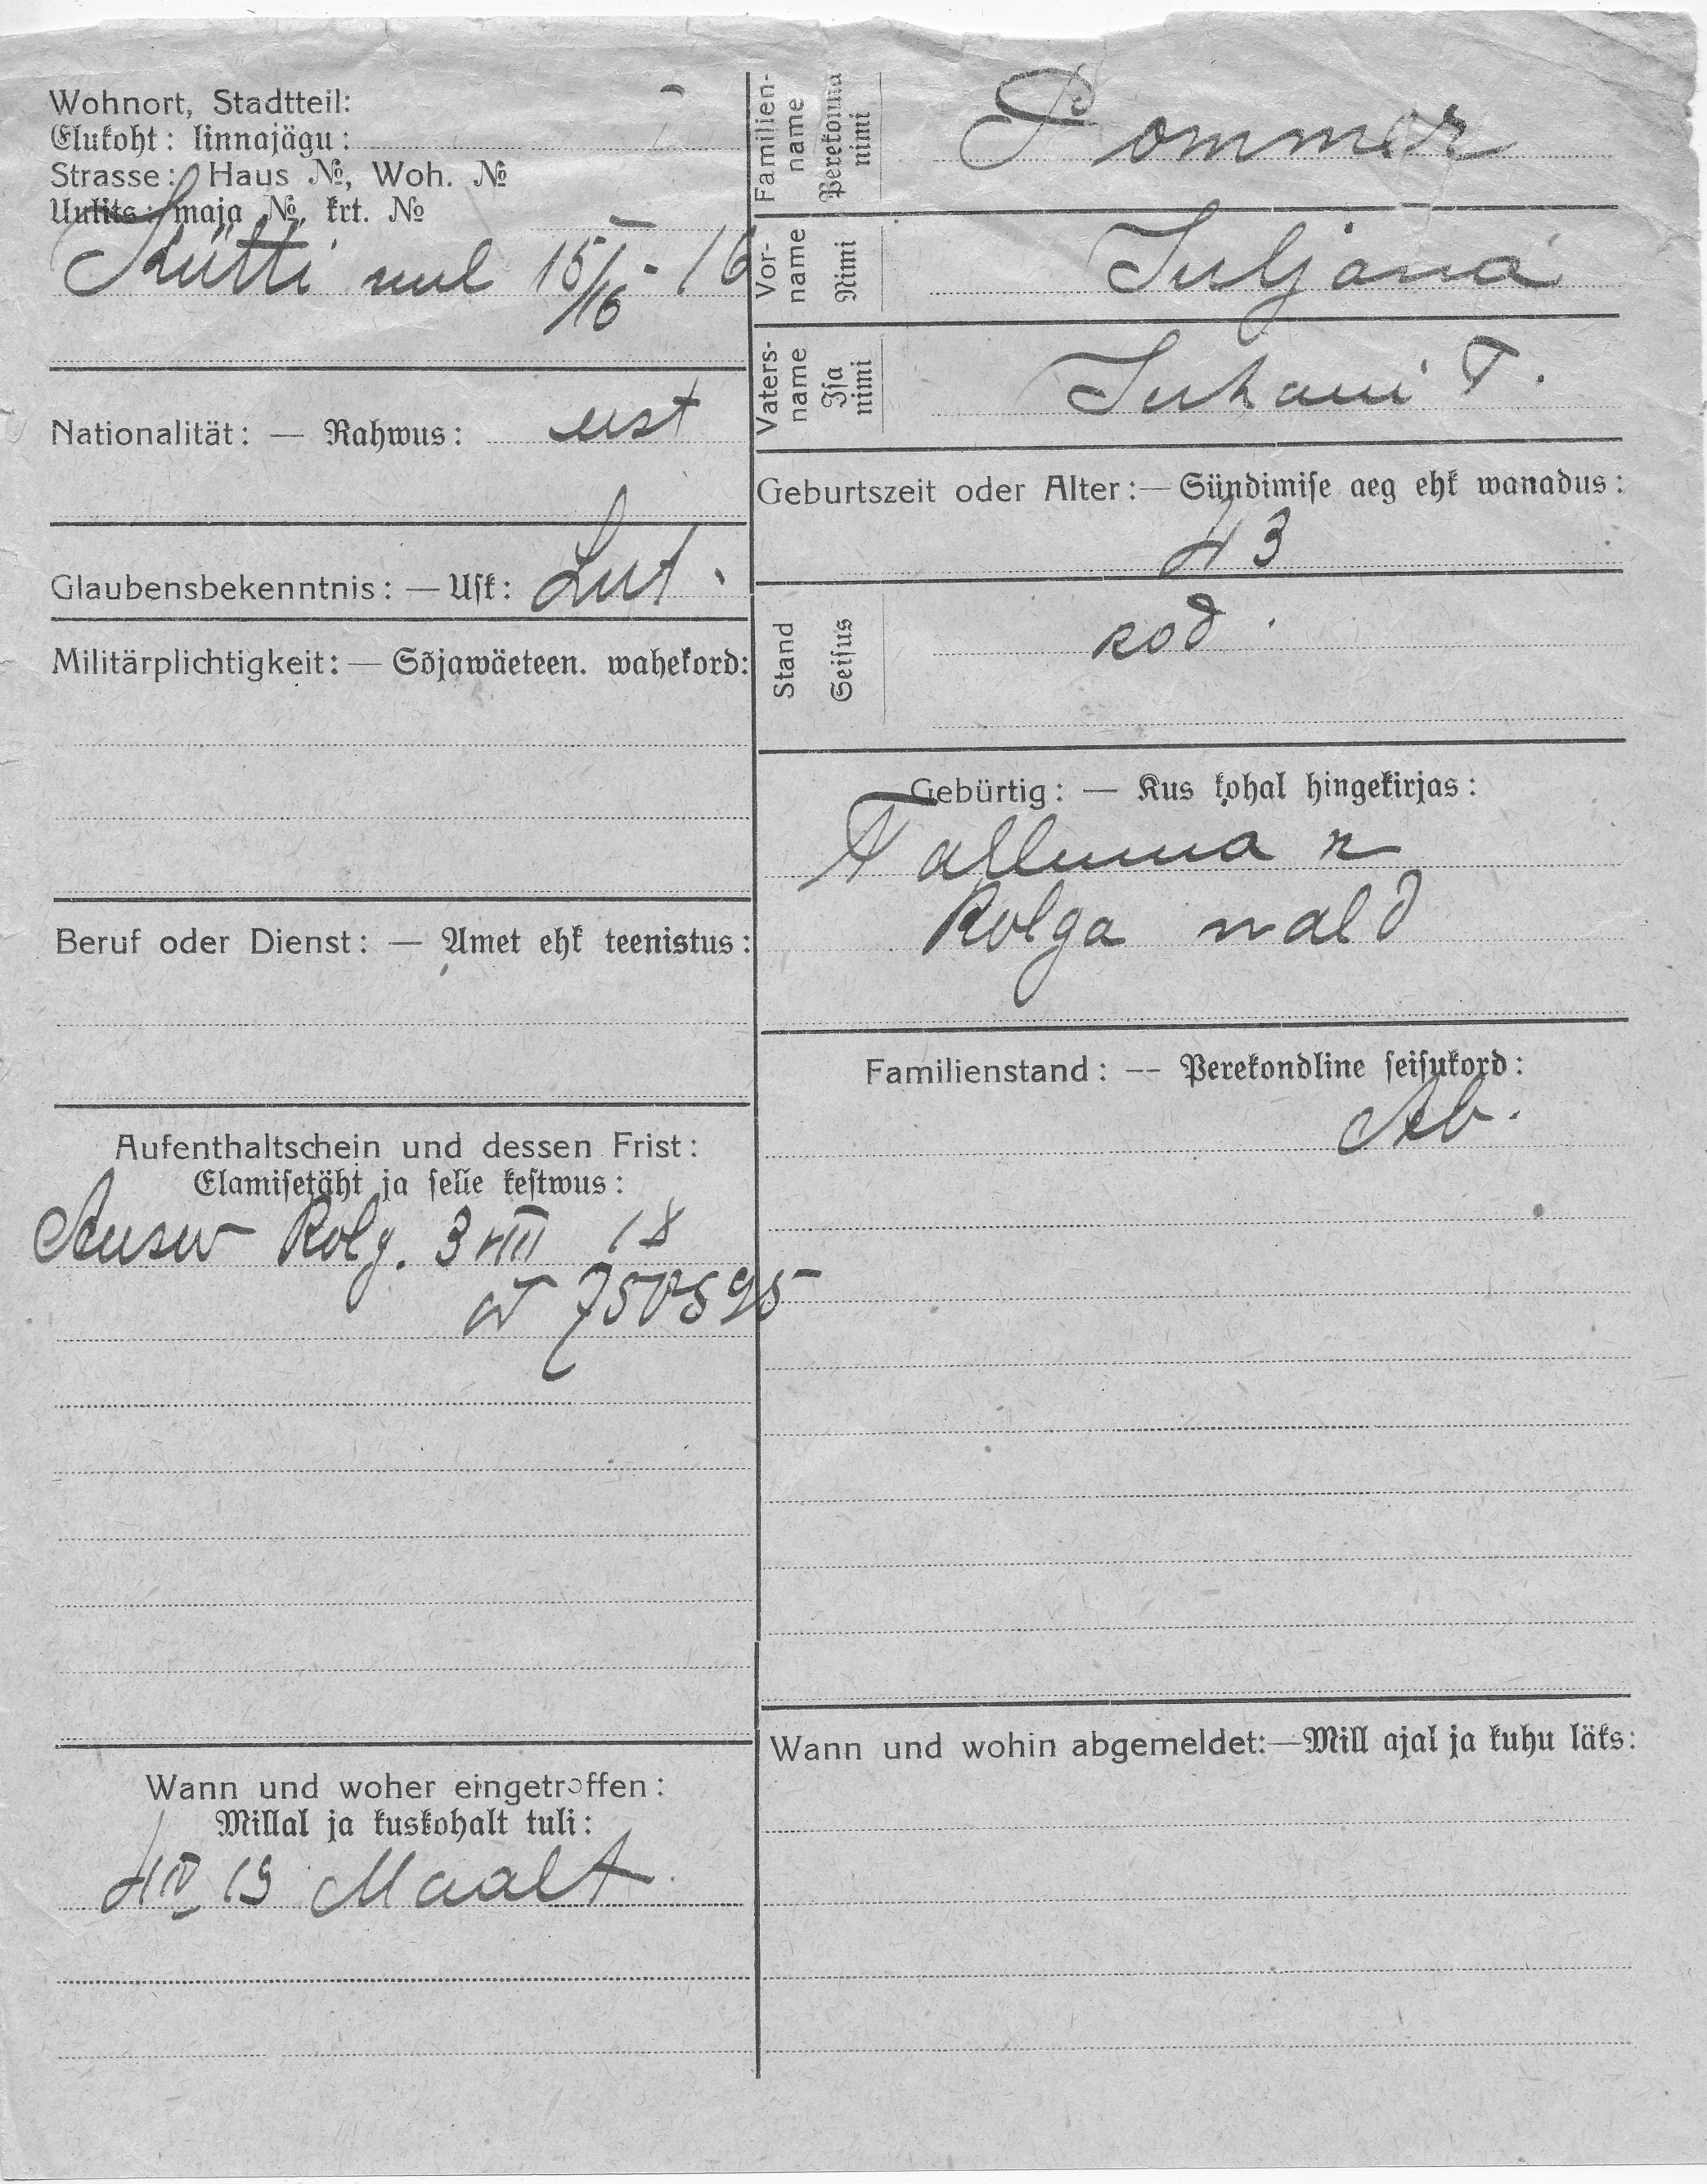 Wohnort, Stadtteil:
Elukoht: linnajägu:
Strasse: Haus №, Woh. №
Uulits: maja №, krt. №
Kütti uul 15/16 - 16
Nationalität: — Rahwus: eest
Glaubensbekenntnis: — Usk: Lut.
Militärplichtigkeit: — Sõjawäeteen. wahekord:
Beruf oder Dienst: — Amet ehk teenistus:
Aufenthaltschein und dessen Frist:
Elamisetäht ja selle kestwus:
Ausw Kolg. 3 VIII 18
750595
Wann und woher eingetroffen:
Millal ja kuskohalt tuli:
4 IV 19 Maalt
Familien-
name
Perekonna
nimi
Pommer
Vor-
name
Nimi
Juljana
Vaters-
name
Isa
nimi
Juhani T.
Geburtszeit oder Alter: — Sündimise aeg ehk wanadus:
43
Stand
Seisus
kod.
Gebürtig: — Kus kohal hingekirjas:
Tallinna k
Kolga wald
Familienstand: -- Perekondline seisukord:
Ab.
Wann und wohin abgemeldet: — Mill ajal ja kuhu läks: